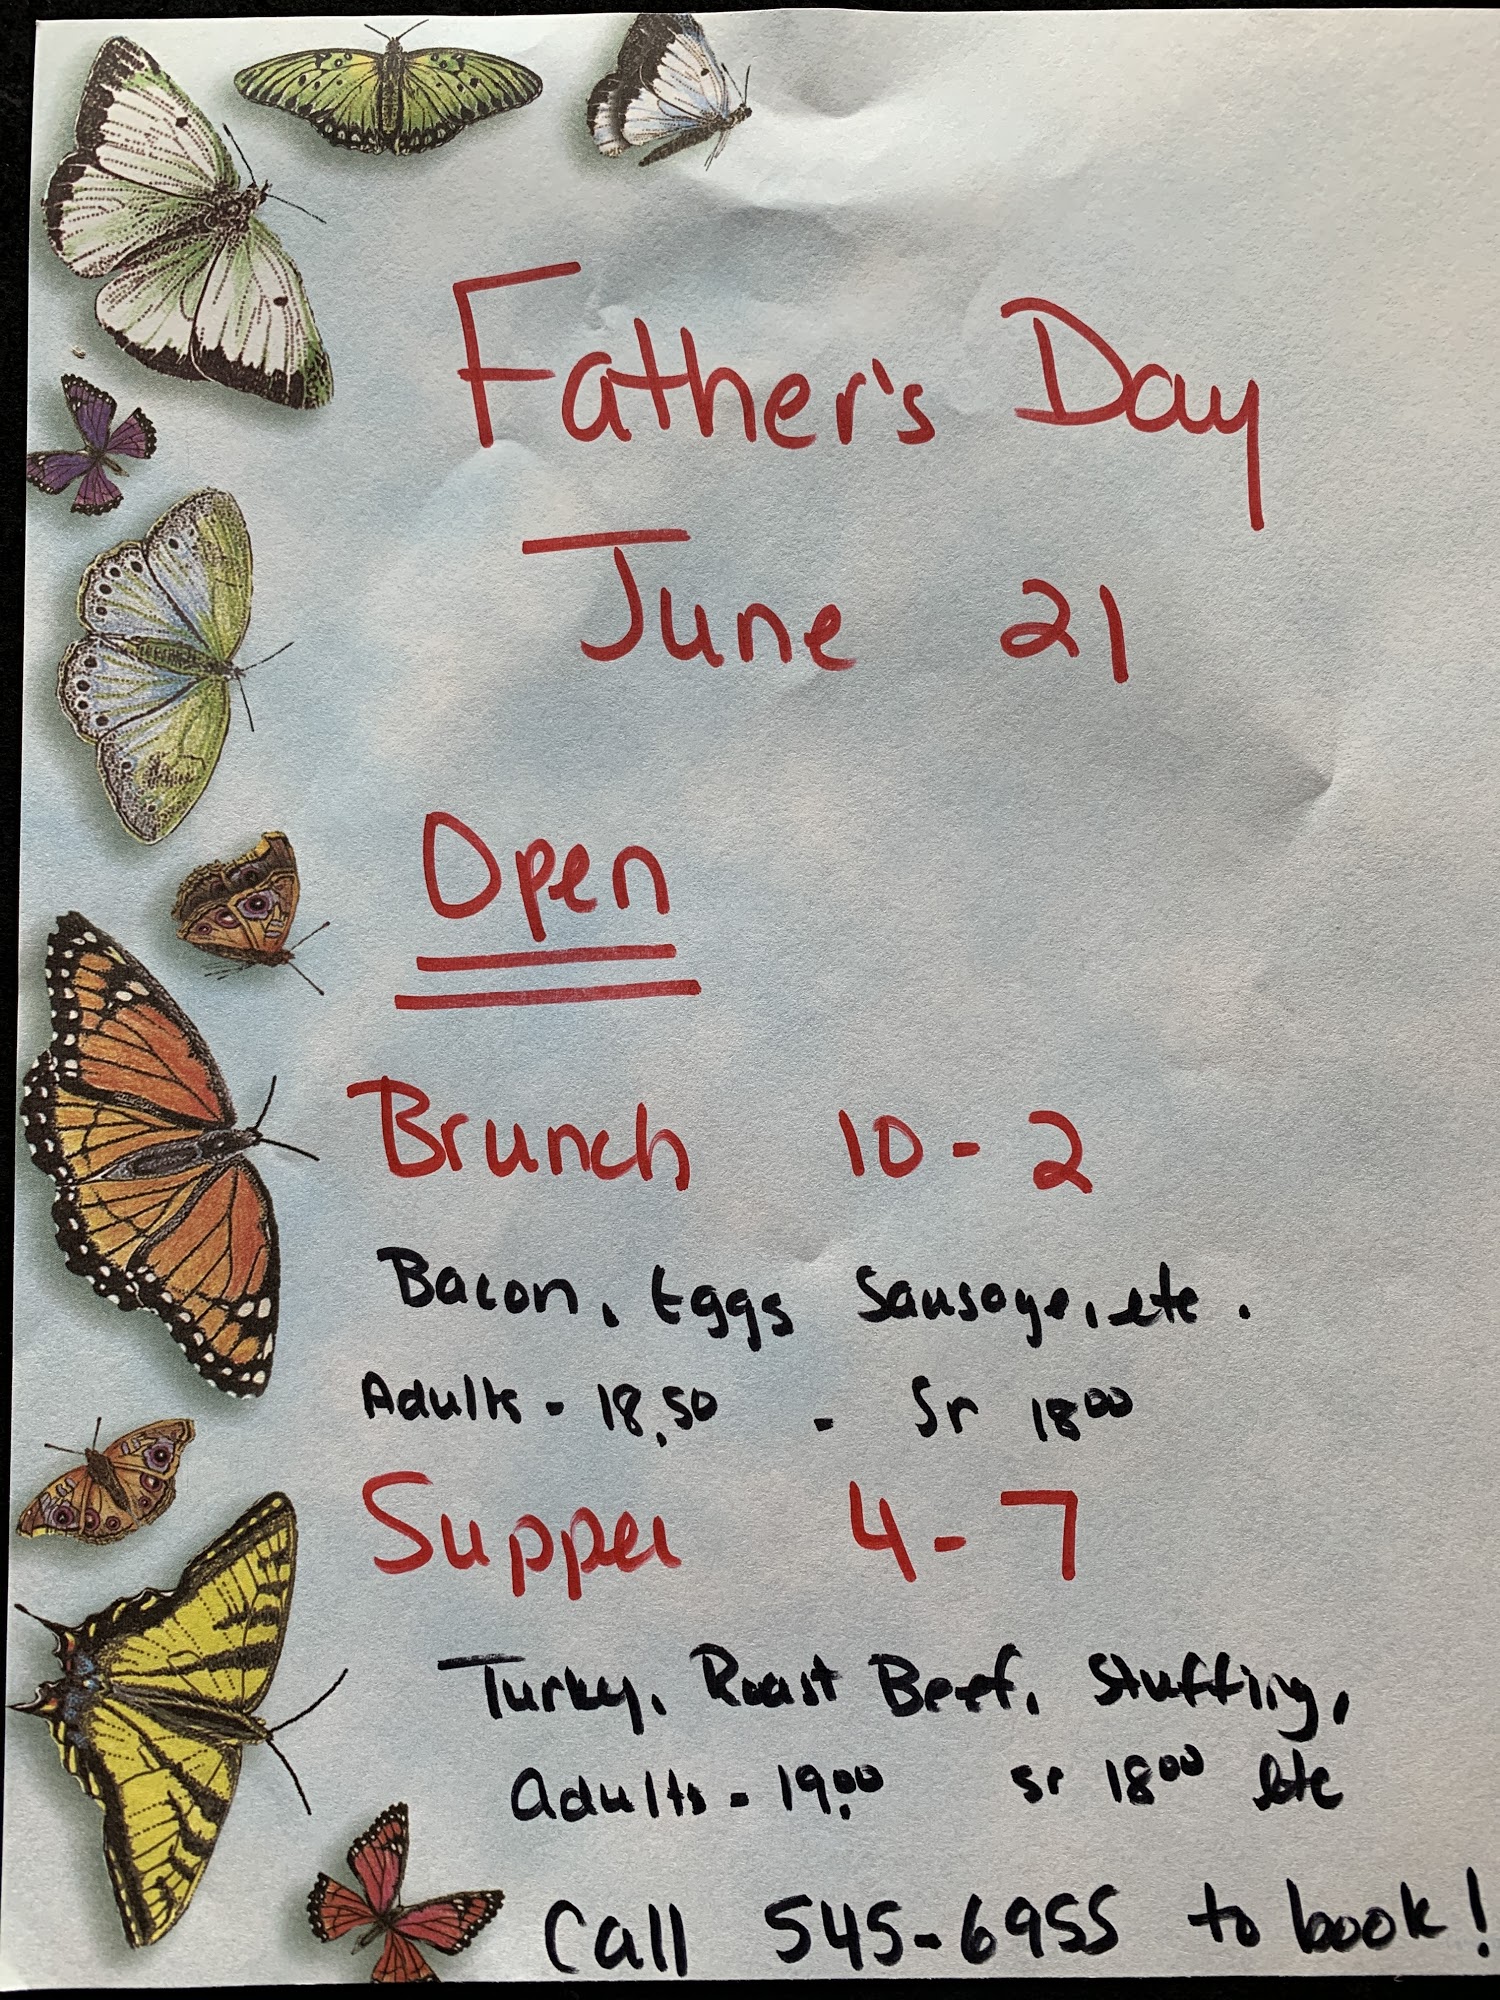 Father's Day
June 21
Open
Brunch 10-2
Bacon, Eggs Sausage, etc.
Adults - 18.50 - Sr 1800
Supper 4-7
Turky, Roast Beef, Stuffing,
Adults - 19.00 Sr 1800 etc
Call 545-6955 to book!